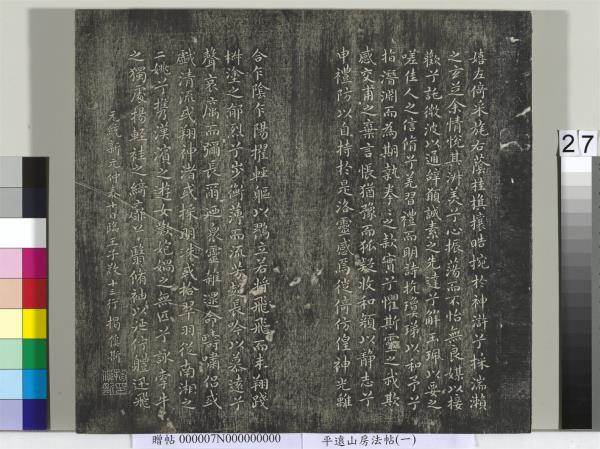 嬉左倚采旄右蔭桂旗攘皓捥於神滸兮採湍瀨
之玄芝余情悅其淑美兮心振蕩而不怡無良媒以接
歡兮託微波以通辭願誠素之先達兮解玉珮以要之
嗟佳人之信脩兮羌習禮而明詩抗瓊珶以和予兮
指潛淵而為期執拳之款實兮懼斯靈之我欺
感交甫之棄言悵猶豫而狐疑收和顏以靜志兮
申禮防以自持於是洛靈感焉徙倚仿偟神光離
合乍陰乍陽擢輕軀以鶴立若將飛而未翔踐
椒塗之郁烈兮步蘅薄而流芳超長吟以慕遠兮
聲哀厲而彌長爾迺眾靈雜遝命疇嘯侶或
戲清流或翔神渚或採明珠或拾翠羽從南湘之
二姚兮攜漢濱之遊女歎匏媧之無匹兮詠牽牛
之獨處揚輕袿之綺靡兮翳脩袖以延佇體迅飛
元統新元仲春廿日臨王子敬十三行 揭傒斯
27
贈帖 000007N000000000
平遠山房法帖(一)